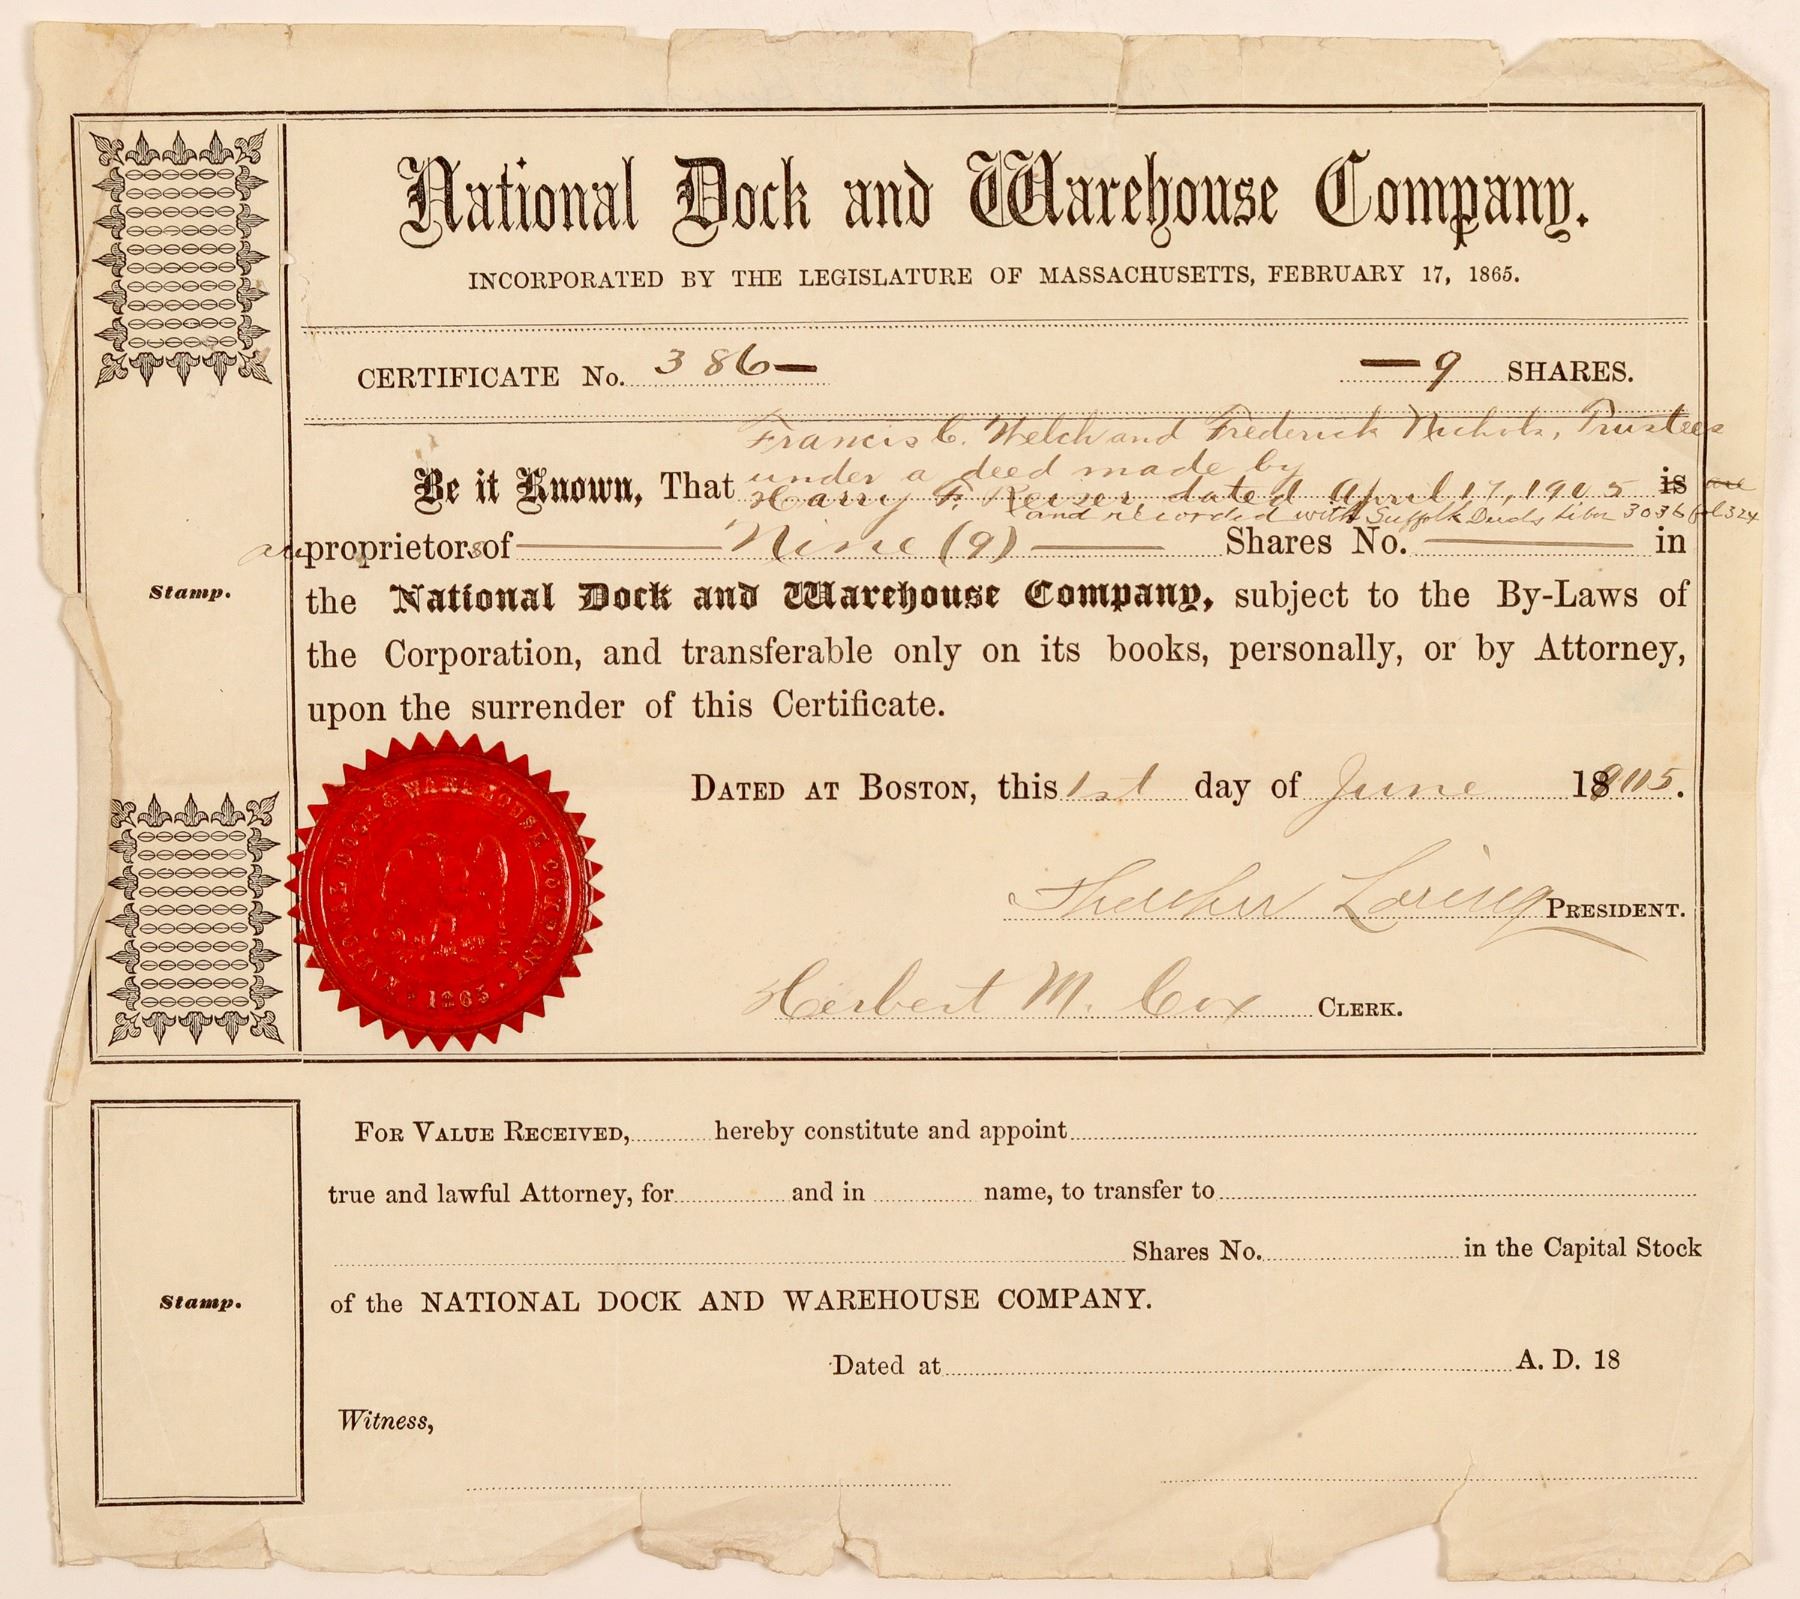 National Dock and Warehouse Company.
INCORPORATED BY THE LEGISLATURE OF MASSACHUSETTS, FEBRUARY 17, 1865.
CERTIFICATE No. 386—
—9 SHARES.
Francis C. Welch and Frederick Nichols, Trustees
under a deed made by
Be it Known, That Harry F. dated April 17, 1905 is are
and recorded with Suffolk Deeds Liber 3036 fol 324
are proprietors of Nine (9) Shares No. in
the National Dock and Warehouse Company, subject to the By-Laws of
the Corporation, and transferable only on its books, personally, or by Attorney,
upon the surrender of this Certificate.
Stamp.
DATED AT BOSTON, this 1st day of June 1905.
Thacher Loring PRESIDENT.
Herbert M. Cox CLERK.
NATIONAL DOCK & WAREHOUSE COMPANY
1865
FOR VALUE RECEIVED, hereby constitute and appoint
true and lawful Attorney, for and in name, to transfer to
Shares No. in the Capital Stock
of the NATIONAL DOCK AND WAREHOUSE COMPANY.
Stamp.
Dated at A. D. 18
Witness,